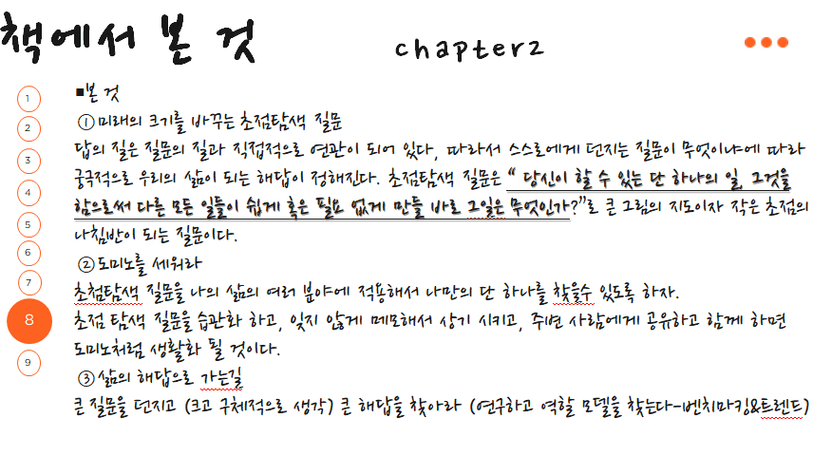 책에서 본 것
chapter2
■본 것
①미래의 크기를 바꾸는 초점탐색 질문
답의 질은 질문의 질과 직접적으로 연관이 되어 있다, 따라서 스스로에게 던지는 질문이 무엇이냐에 따라
궁극적으로 우리의 삶이 되는 해답이 정해진다. 초점탐색 질문은 “ 당신이 할 수 있는 단 하나의 일, 그것을
함으로써 다른 모든 일들이 쉽게 혹은 필요 없게 만들 바로 그일은 무엇인가?”로 큰 그림의 지도이자 작은 초점의
나침반이 되는 질문이다.
②도미노를 세워라
초첨탐색 질문을 나의 삶의 여러 분야에 적용해서 나만의 단 하나를 찾을수 있도록 하자.
초점 탐색 질문을 습관화 하고, 잊지 않게 메모해서 상기 시키고, 주변 사람에게 공유하고 함께 하면
도미노처럼 생활화 될 것이다.
③삶의 해답으로 가는길
큰 질문을 던지고 (크고 구체적으로 생각) 큰 해답을 찾아라 (연구하고 역할 모델을 찾는다-벤치마킹&트렌드)
1
2
3
4
5
6
7
8
9